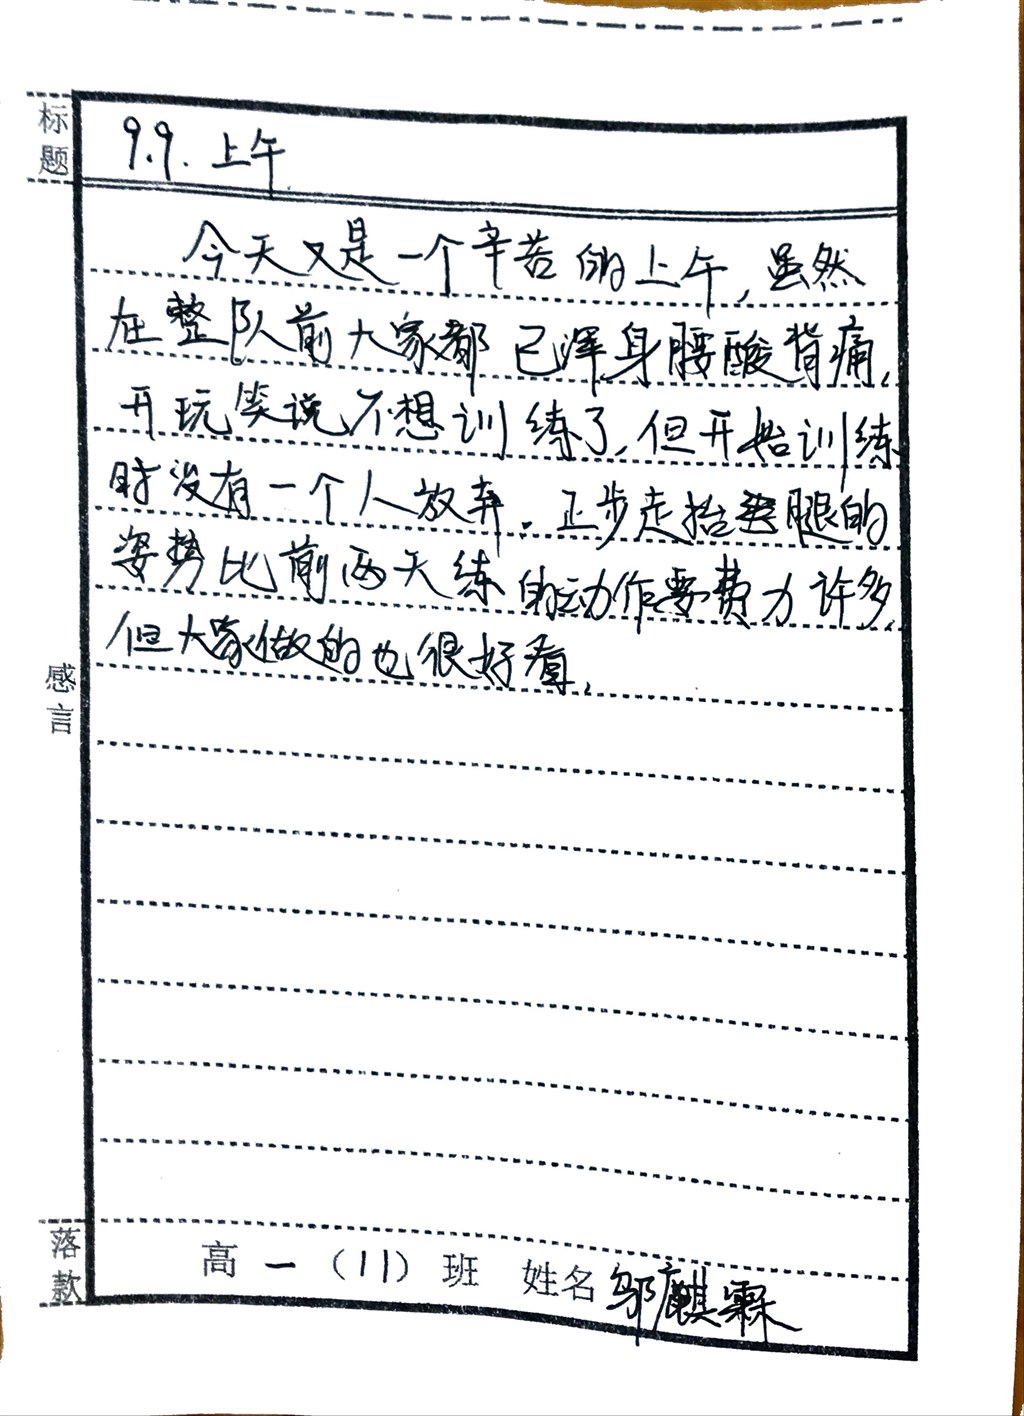 标题
9.9.上午
今天又是一个辛苦的上午,虽然
在整队前大家都已浑身腰酸背痛,
开玩笑说不想训练了,但开始训练
时没有一个人放弃.正步走抬腿的
姿势比前两天练的动作要费力许多,
但大家做的也很好看.
感言
落款
高一(11)班 姓名邬麒霖